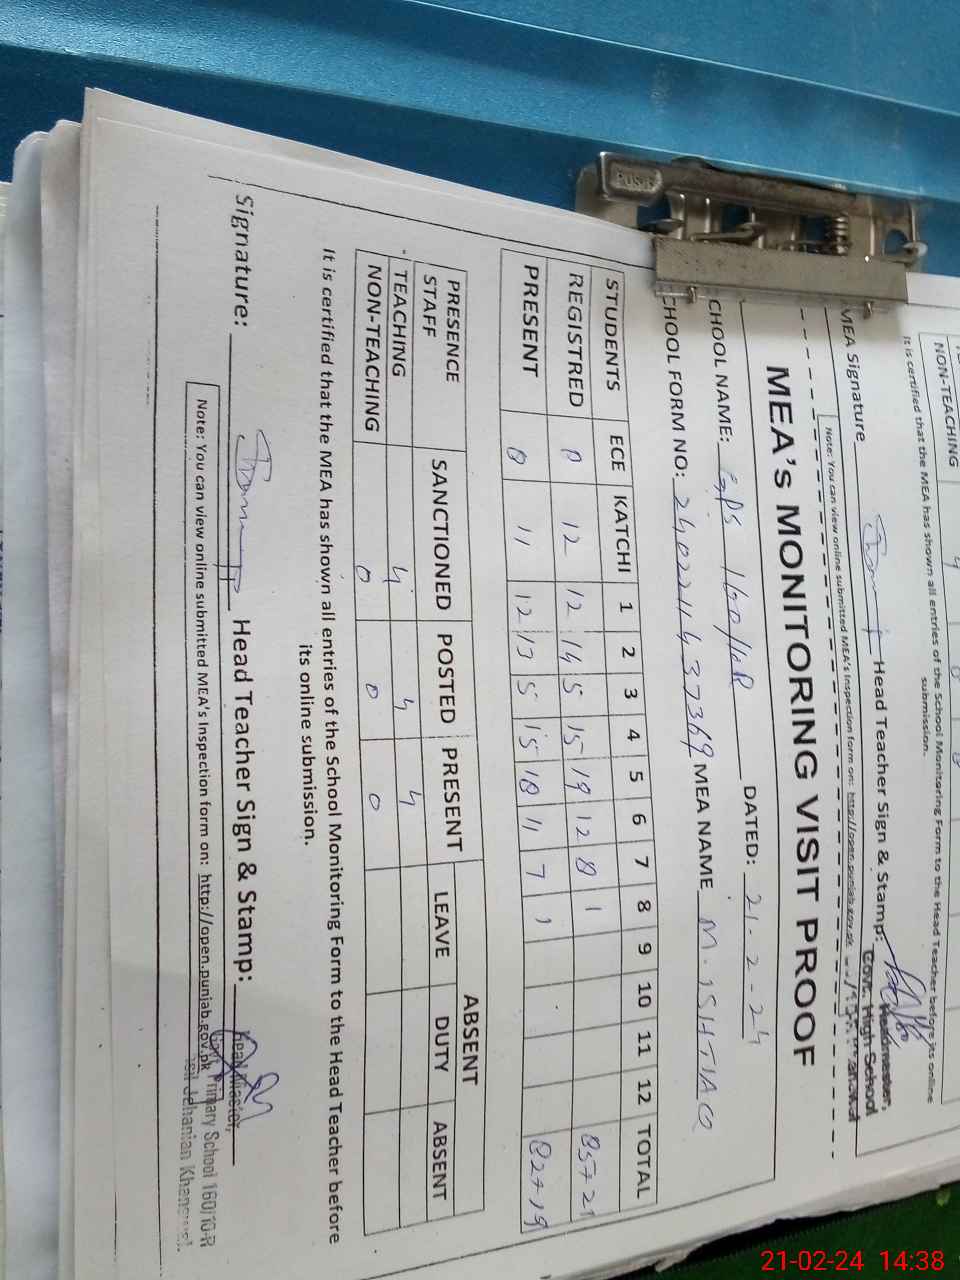 NON-TEACHING 4 0 0
It is certified that the MEA has shown all entries of the School Monitoring Form to the Head Teacher before its online
submission.
MEA Signature Head Teacher Sign & Stamp:
Headmaster,
Govt. High School
Note: You can view online submitted MEA's Inspection form on: http://open.punjab.gov.pk
MEA'S MONITORING VISIT PROOF
CHOOL NAME: GPS 160/10R DATED: 21-2-24
CHOOL FORM NO: MEA NAME M. ISHTIAQ
STUDENTS ECE KATCHI 1 2 3 4 5 6 7 8 9 10 11 12 TOTAL
REGISTRED 0 12 12 14 5 15 19 12 8 1 85+21
PRESENT 0 11 12 13 5 15 18 11 7 1 82+19
PRESENCE STAFF SANCTIONED POSTED PRESENT ABSENT
LEAVE DUTY ABSENT
TEACHING 4 4 4
NON-TEACHING 0 0 0
It is certified that the MEA has shown all entries of the School Monitoring Form to the Head Teacher before
its online submission.
Signature: Head Teacher Sign & Stamp:
Head Master,
Govt. Primary School 160/10-R
Jehanian Khanewal.
Note: You can view online submitted MEA's Inspection form on: http://open.punjab.gov.pk
PUSH
21-02-24 14:38